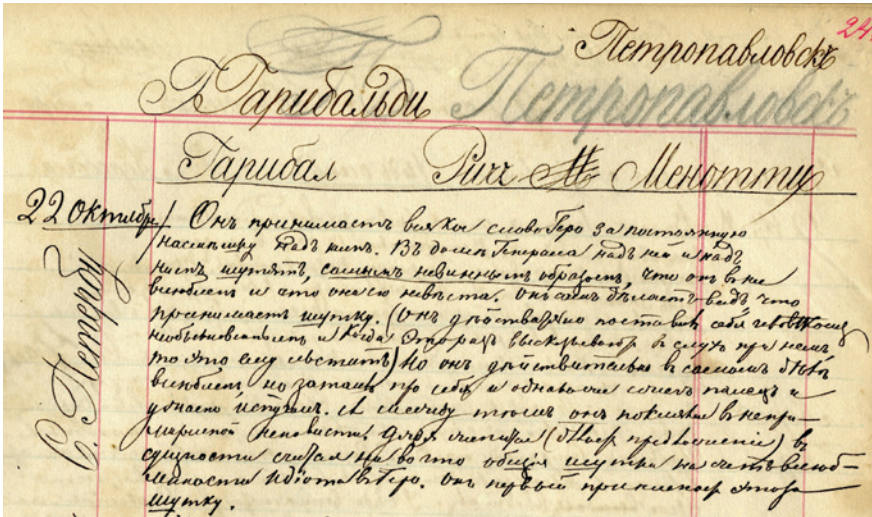 24
Петропавловскъ
Гарибальди Петропавловскъ
Гарибал Рич Менотти
22 Октября/ Онъ принимаетъ всякое слово Геро за постоянную
насмѣшку надъ нимъ. Въ домѣ Генерала надъ ней и надъ
нимъ шутятъ, самымъ невиннымъ образомъ, что онъ в нее
влюбленъ и что она его невѣста. Онъ самъ дѣлаетъ видъ что
принимаетъ шутку. (Онъ дѣйствительно поставилъ себя человѣкомъ
необыкновеннымъ и когда это разъ высказываютъ в слухъ при немъ
то это ему льститъ) Но онъ дѣйствительно в самомъ дѣлѣ
влюбленъ но затаилъ про себя и однажды палецъ и
ужасно испугалъ. А между тѣмъ онъ поклялся в непри-
миримой ненависти. Дядя считаетъ (предпочтение) въ
сущности считая на во что общая шутка на счетъ влюб-
ленности Идіота въ Геро. Онъ первый
шутку.
С. Петербу